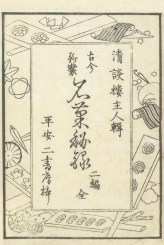 清談樓主人輯
古今
新製 名菓秘録 二編 全
平安 二書房梓